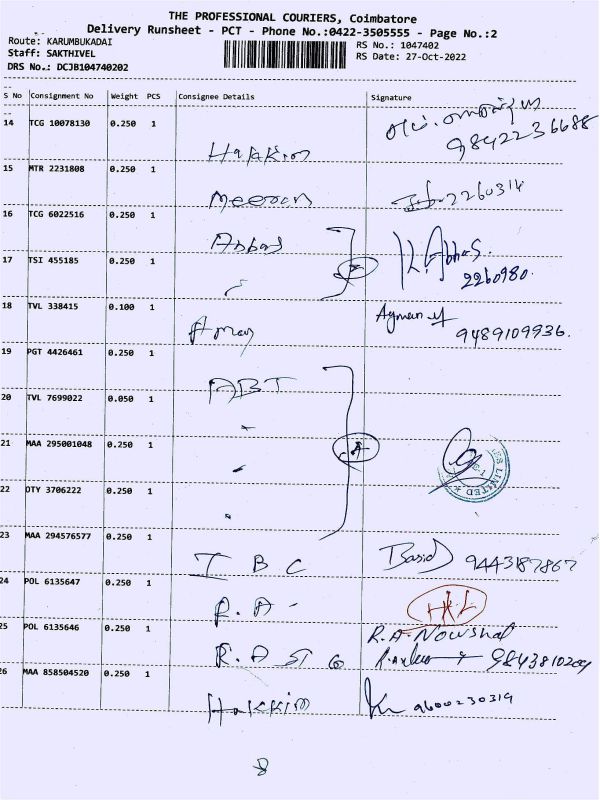 THE PROFESSIONAL COURIERS, Coimbatore
Delivery Runsheet - PCT - Phone No.:0422-3505555 - Page No.:2
Route: KARUMBUKADAI
RS No.: 1047402
Staff: SAKTHIVEL
RS Date: 27-Oct-2022
DRS No.: DCJB104740202
S No Consignment No Weight PCS Consignee Details Signature
14 TCG 10078130 0.250 1 Hakkim 9842236688
15 MTR 2231808 0.250 1 Meeran 2260314
16 TCG 6022516 0.250 1 Abbas K. Abbas
17 TSI 455185 0.250 1 2260980.
18 TVL 338415 0.100 1 Aman Ayman 9489109936.
19 PGT 4426461 0.250 1 ABT
20 TVL 7699022 0.050 1
21 MAA 295001048 0.250 1 A
22 OTY 3706222 0.250 1 LIMITED
23 MAA 294576577 0.250 1 I B C Basid 9443187867
24 POL 6135647 0.250 1 R.A - H/L
25 POL 6135646 0.250 1 R.A R.A. Nowshad
9843810209
26 MAA 858504520 0.250 1 Hakkim 9600230314
8